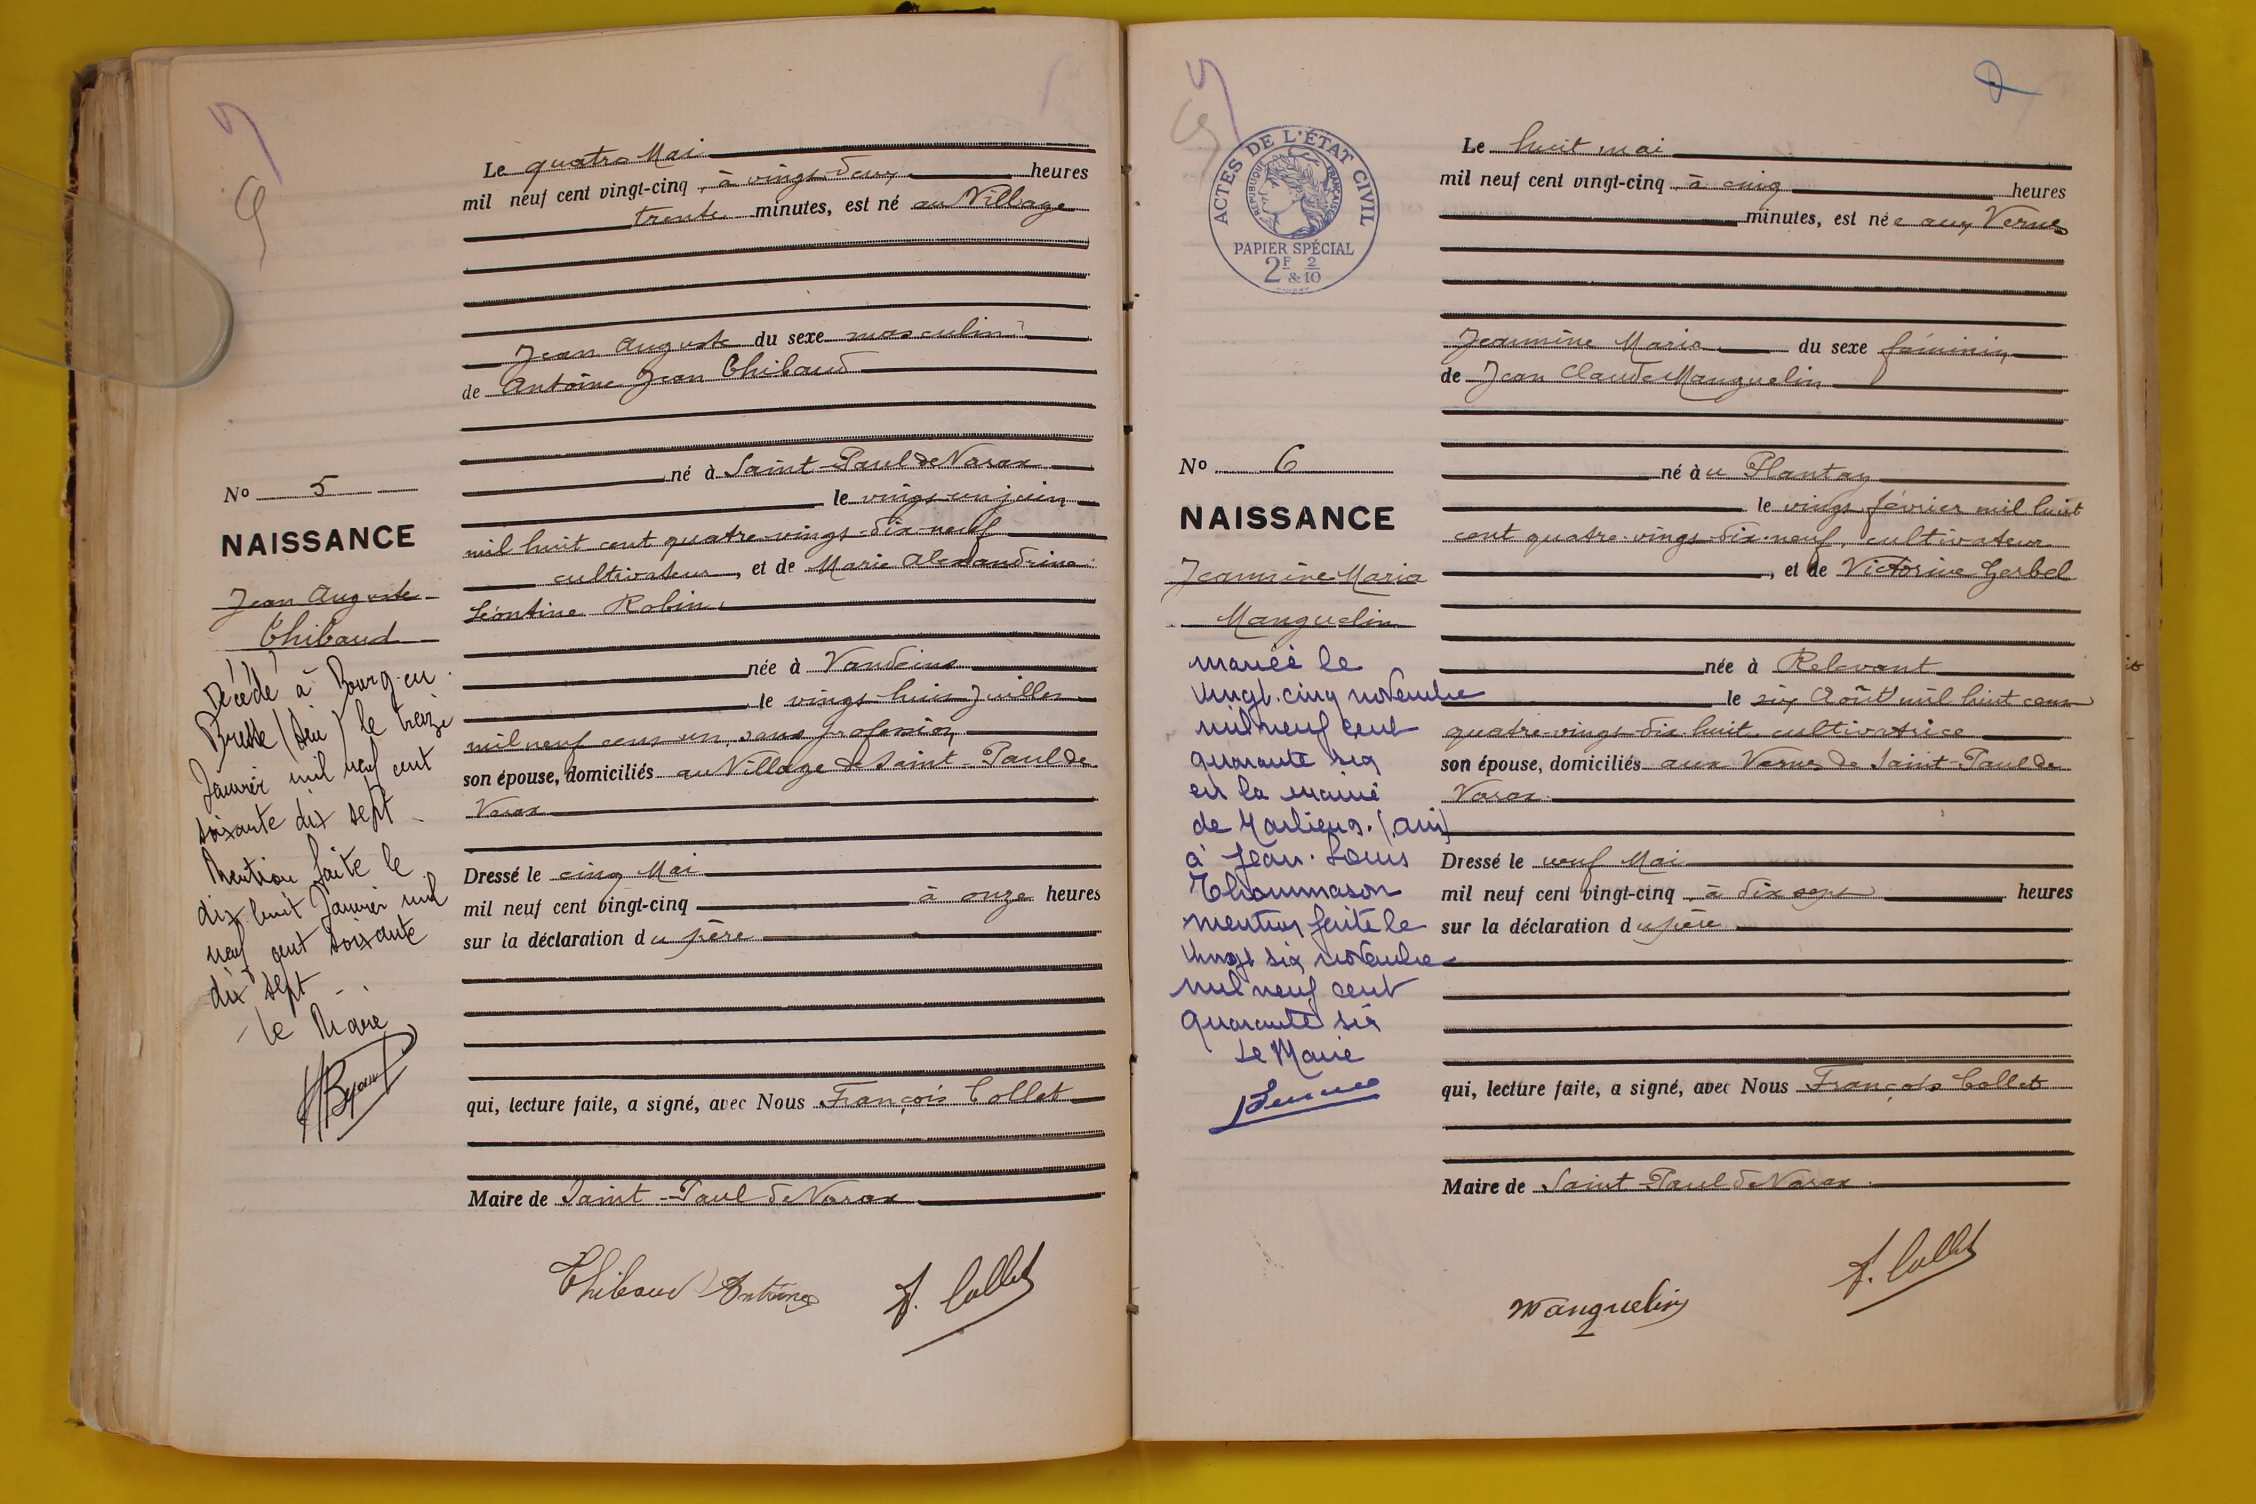 Le quatre Mai
mil neuf cent vingt-cinq, à vingt-deux heures
trente minutes, est né au Village
Jean Auguste du sexe masculin
de Antoine Jean Thibaud
né à Saint-Paul de Varax
le vingt-un juin
mil huit cent quatre-vingt-dix-neuf
cultivateur, et de Marie Alexandrine
Léontine Robin,
née à Vandeins
le vingt-huit Juillet
mil neuf cent un, sans profession
son épouse, domiciliés au Village de Saint-Paul de
Varax
Dressé le cinq Mai
mil neuf cent vingt-cinq à onze heures
sur la déclaration du père
qui, lecture faite, a signé, avec Nous François Collet
Maire de Saint-Paul de Varax
Thibaud Antoine F. Collet
No 5
NAISSANCE
Jean Auguste
Thibaud
Décédé à Bourg-en-
Bresse (Ain) le treize
Janvier mil neuf cent
soixante dix sept -
Mention faite le
dix huit Janvier mil
neuf cent soixante
dix sept - .
- Le Maire
ACTES DE L'ÉTAT CIVIL
RÉPUBLIQUE FRANÇAISE
PAPIER SPÉCIAL
2F & 2/10
Le huit mai
mil neuf cent vingt-cinq, à cinq heures
minutes, est née aux Vernes
Jeannine Maria du sexe féminin
de Jean Claude Manguelin
né au Plantay
le vingt février mil huit
cent quatre-vingt-dix-neuf, cultivateur
, et de Victorine Gerbel
née à Relevant
le six Août mil huit cent
quatre-vingt-dix huit, cultivatrice
son épouse, domiciliés aux Vernes de Saint-Paul de
Varax.
Dressé le neuf Mai
mil neuf cent vingt-cinq, à dix sept heures
sur la déclaration du père
qui, lecture faite, a signé, avec Nous François Collet
Maire de Saint-Paul de Varax.
Manguelin F. Collet
No 6
NAISSANCE
Jeannine Maria
Manguelin
mariée le
vingt-cinq novembre
mil neuf cent
quarante six
en la mairie
de Marlieux. (Ain)
à Jean-Louis
Thommason
mention faite le
vingt six novembre
mil neuf cent
quarante six
Le Maire